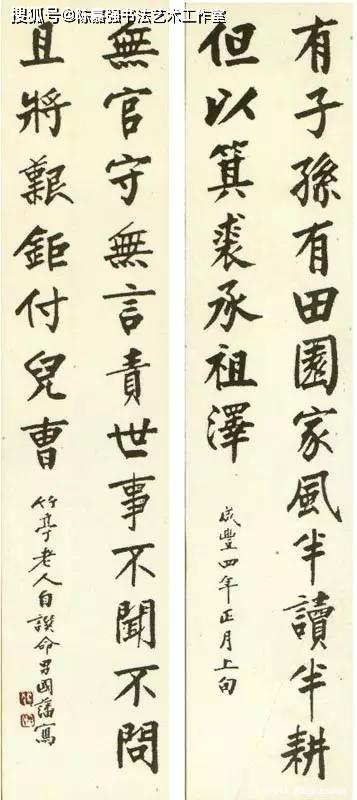 搜狐号@陈嘉强书法艺术工作室
有子孫有田園家風半讀半耕
但以箕裘承祖澤
咸豐四年正月上旬
無官守無言責世事不聞不問
且將艱鉅付兒曹
竹亭老人自譔命男國藩寫